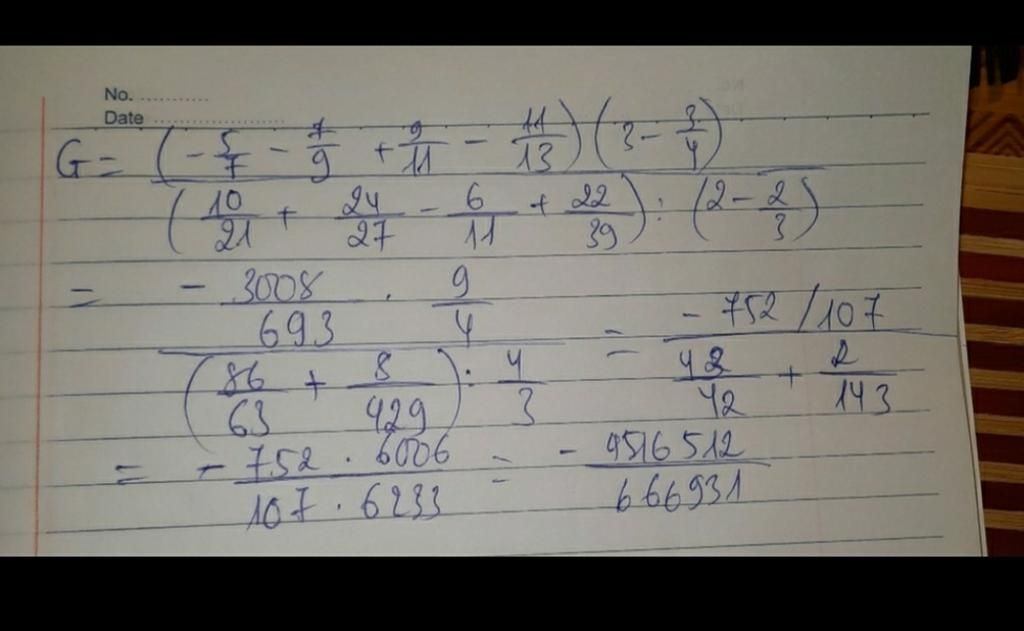 No. ..........
Date ......................
G = (- 5/7 - 7/9 + 9/11 - 11/13) (3 - 3/4)
(10/21 + 24/27 - 6/11 + 22/39) : (2 - 2/3)
= - 3008/693 . 9/4
(86/63 + 8/429) : 4/3
= - 752/107
43/42 + 2/143
= - 752 . 6006 / 107 . 6233 = - 4516512/666931